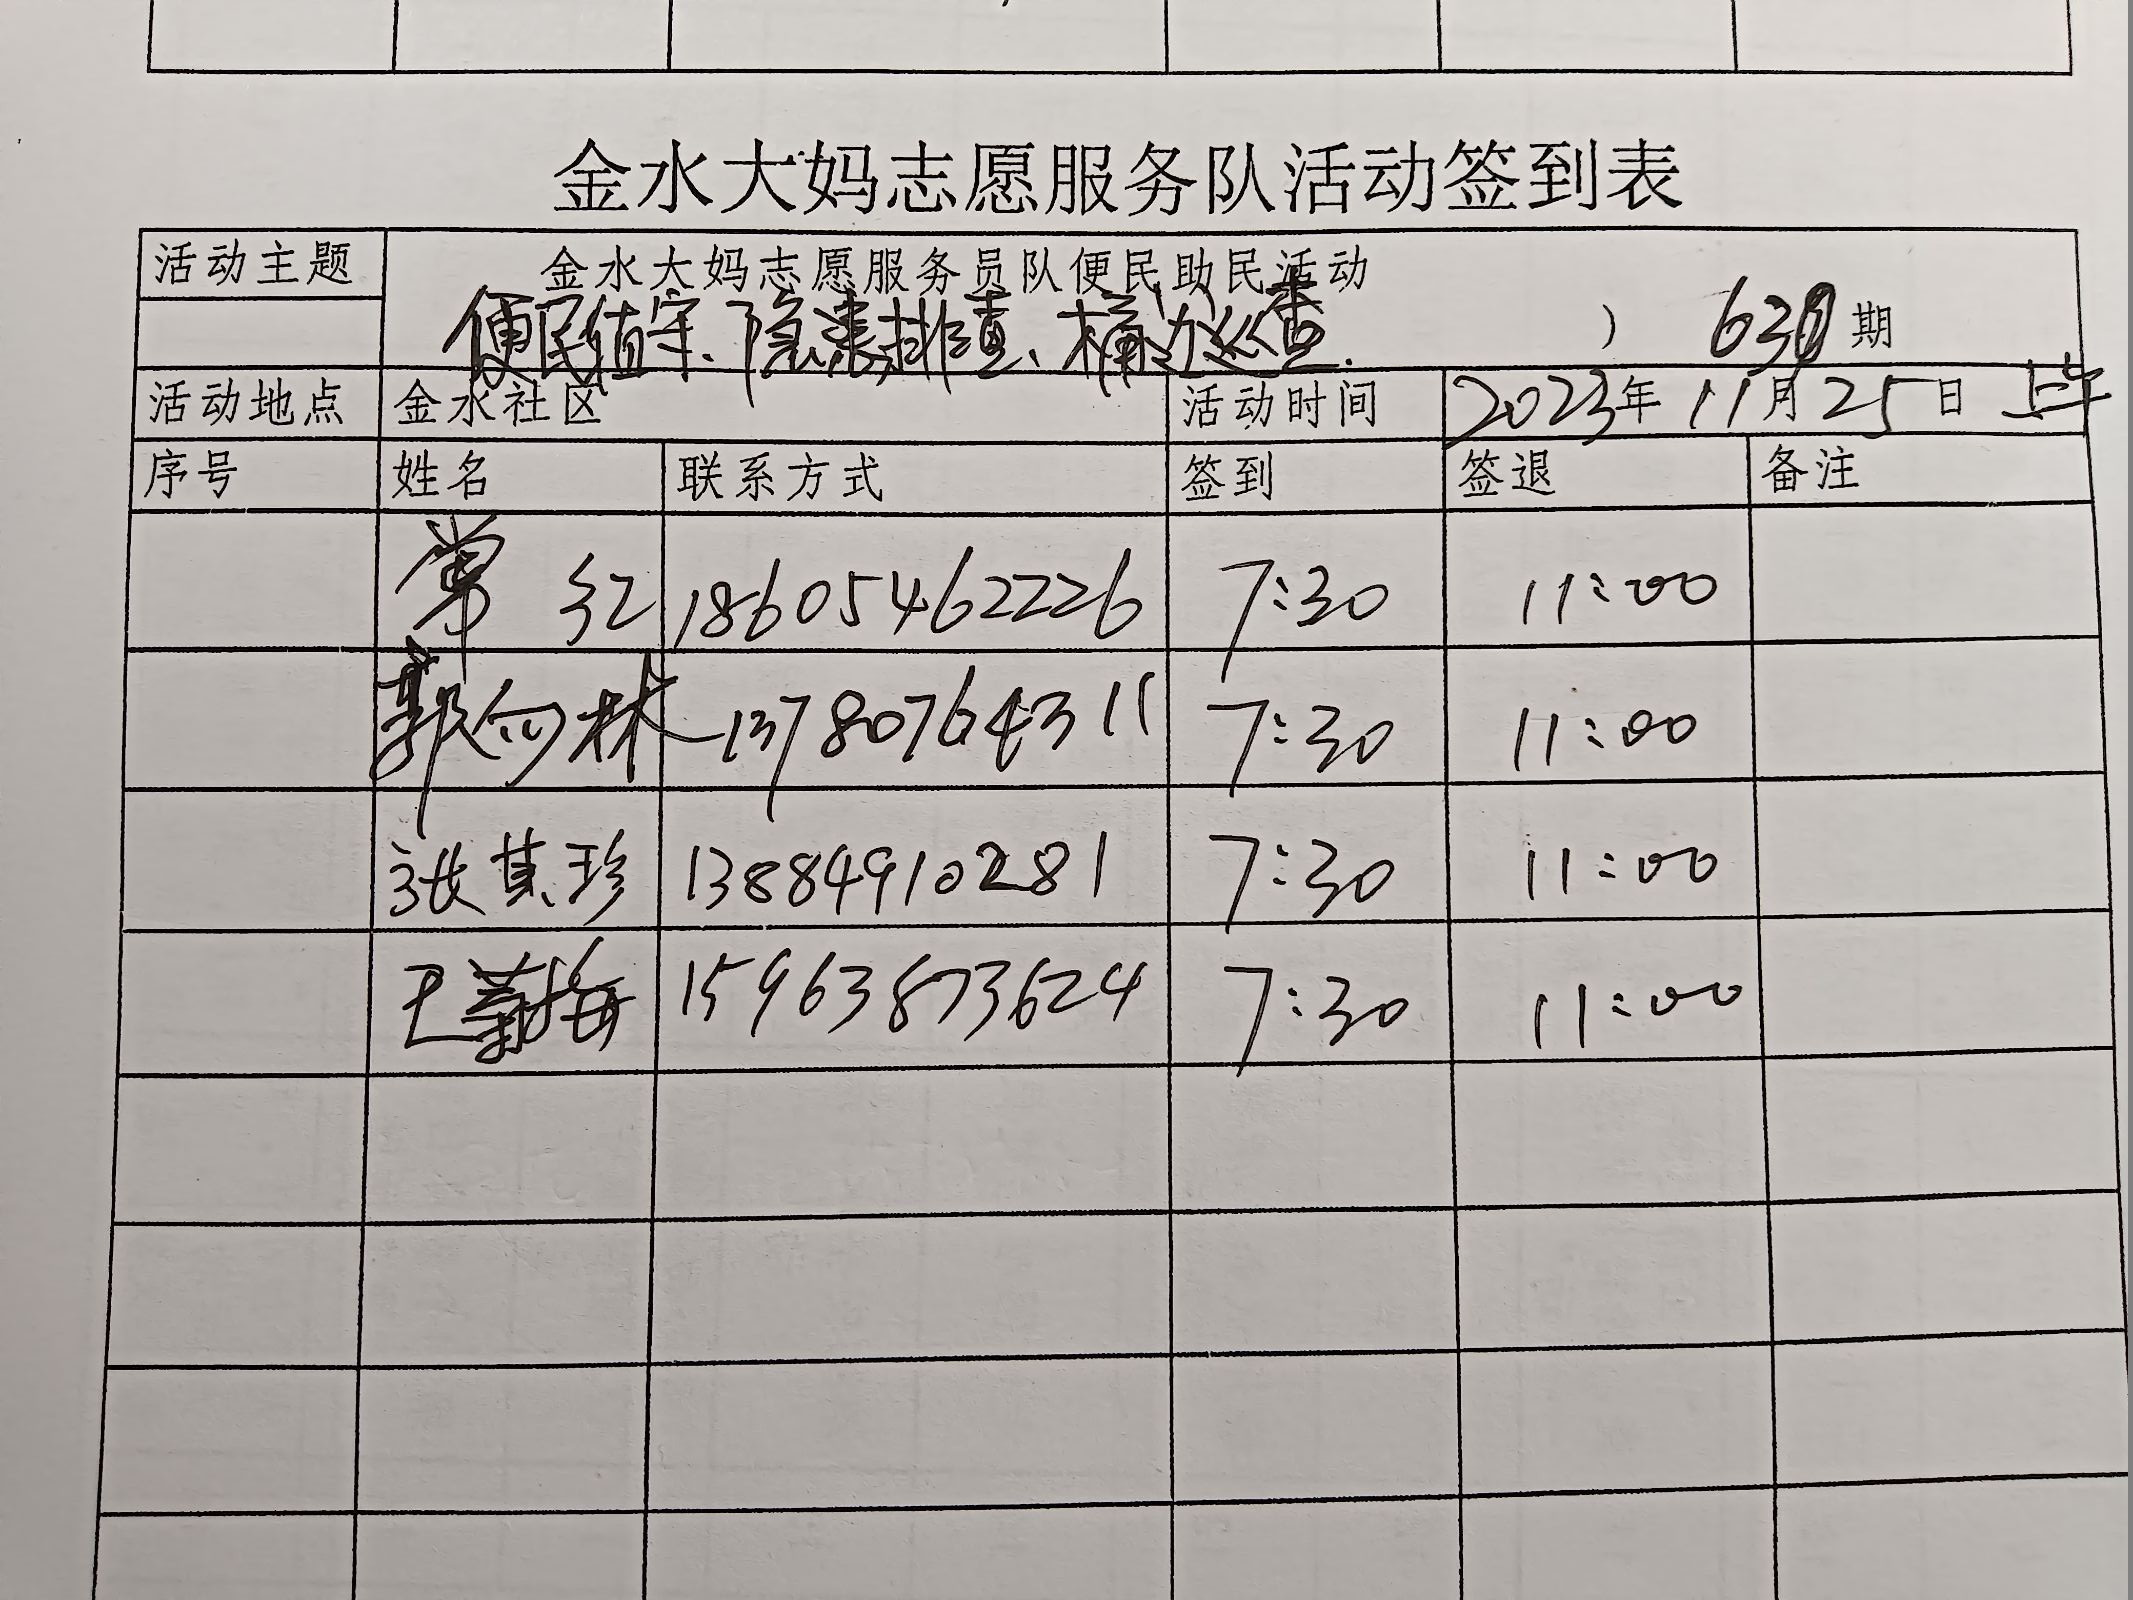 金水大妈志愿服务队活动签到表
活动主题 金水大妈志愿服务员队便民助民活动
便民值守、隐患排查、桶边巡查. ） 期
活动地点 金水社区 活动时间 2023年11月25日 上午
序号 姓名 联系方式 签到 签退 备注
常红 18605462226 7:30 11:00
郭向林 13780764311 7:30 11:00
张其珍 13884910281 7:30 11:00
王菊梅 15963873624 7:30 11:00